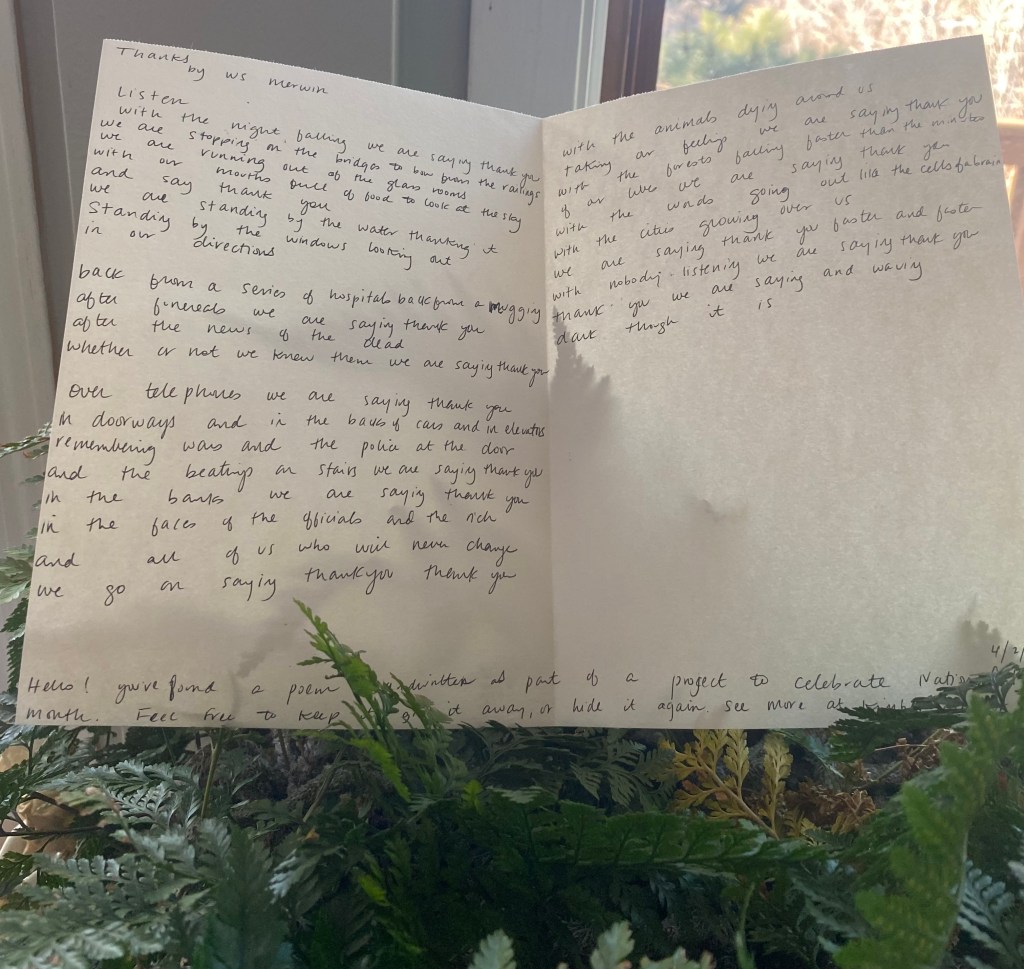 Thanks
by ws merwin
Listen
with the night falling we are saying thank you
we are stopping on the bridges to bow from the railings
we are running out of the glass rooms
with our mouths full of food to look at the sky
and say thank you
we are standing by the water thanking it
Standing by the windows looking out
in our directions
back from a series of hospitals back from a mugging
after funerals we are saying thank you
after the news of the dead
whether or not we knew them we are saying thank you
Over telephones we are saying thank you
in doorways and in the backs of cars and in elevators
remembering wars and the police at the door
and the beatings on stairs we are saying thank you
in the banks we are saying thank you
in the faces of the officials and the rich
and all of us who will never change
we go on saying thank you thank you
with the animals dying around us
taking our feelings we are saying thank you
with the forests falling faster than the minutes
of our lives we are saying thank you
with the words going out like the cells of a brain
with the cities growing over us
we are saying thank you faster and faster
with nobody listening we are saying thank you
thank you we are saying and waving
dark though it is
4/2/
Hello! you've found a poem as part of a project to celebrate
month. Feel free to keep it away, or hide it again. see more at